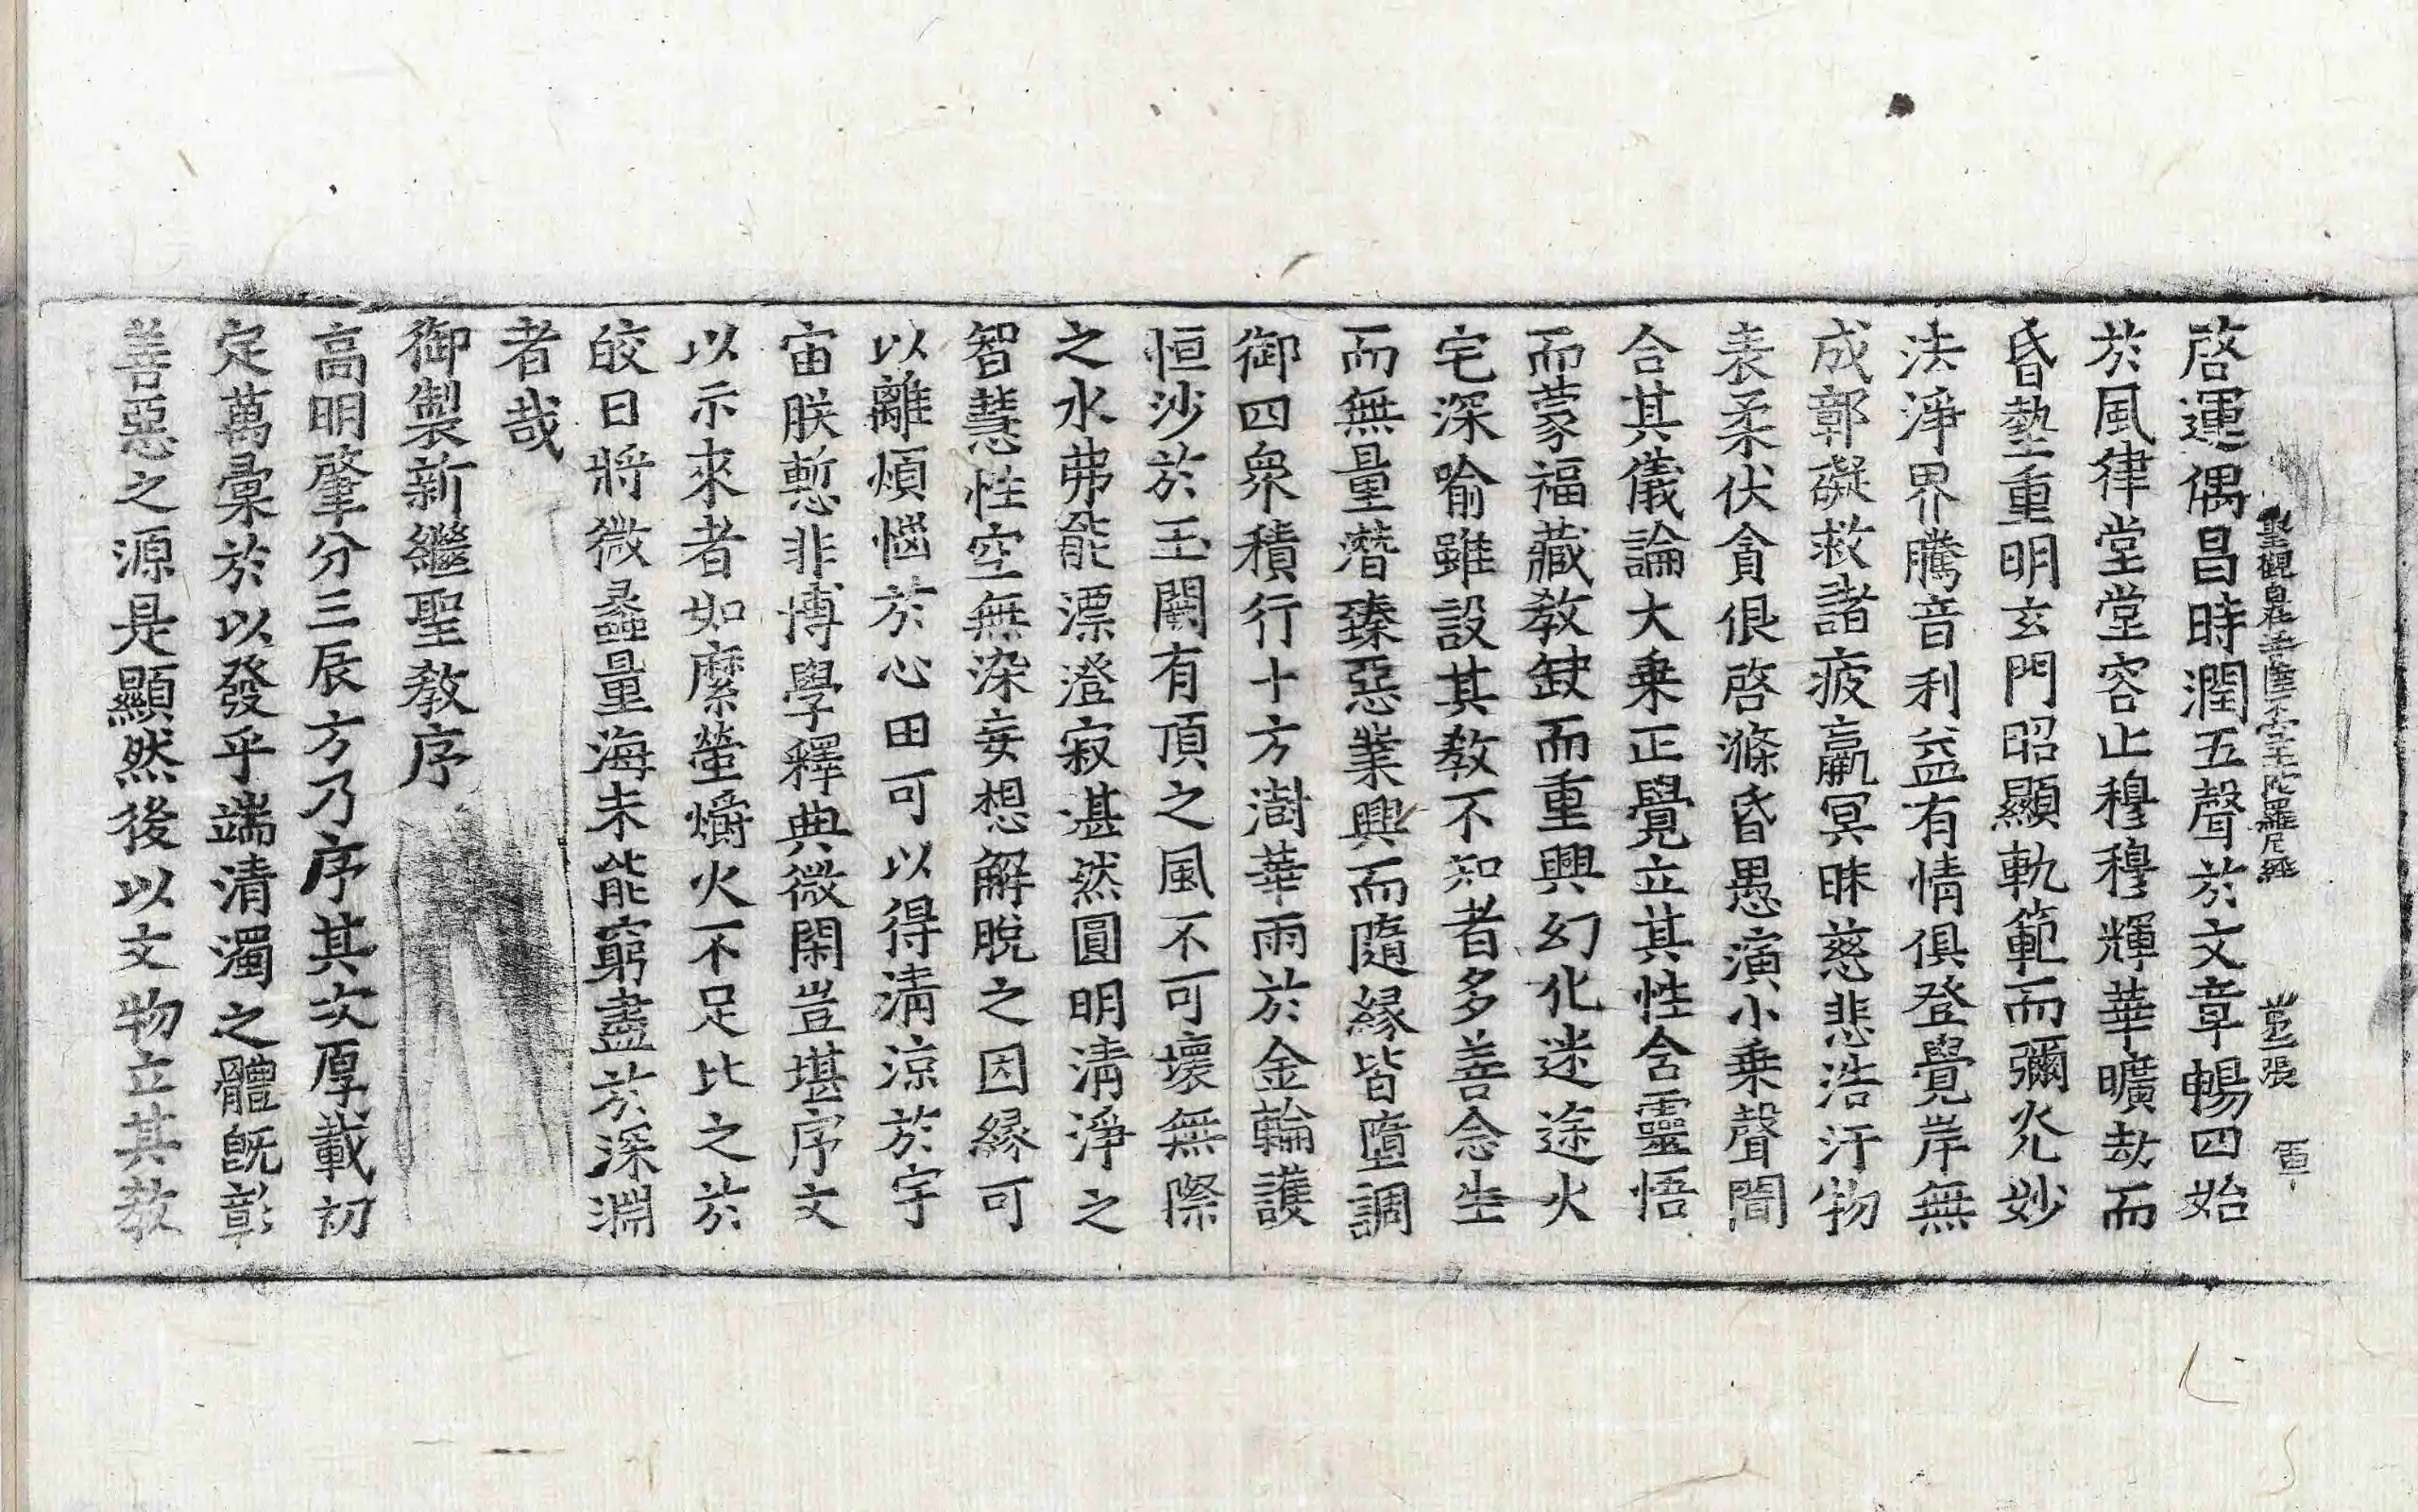 聖觀自在菩薩不空王陀羅尼經 第二張 覃
啓運偶昌時潤五聲於文章暢四始
於風律堂堂容止穆穆輝華曠劫而
昏墊重明玄門昭顯軌範而彌光妙
法淨界騰音利益有情俱登覺岸無
成鄣礙救諸疲羸冥昧慈悲浩汗物
表柔伏貪佷啓滌昏愚演小乗聲聞
合其儀論大乗正覺立其性含靈悟
而蒙福藏敎缺而重興幻化迷途火
宅深喻雖設其敎不知者多善念生
而無量潛臻惡業興而隨緣皆墮調
御四衆積行十方澍華雨於金輪護
恒沙於玉闕有頂之風不可壞無際
之水弗能漂澄寂湛然圓明淸淨之
智慧性空無染妄想解脫之因緣可
以離煩惱於心田可以得淸涼於宇
宙朕慙非博學釋典微閑豈堪序文
以示來者如縻螢爝火不足比之於
皎日將微蠡量海未能窮盡於深淵
者哉
御製新繼聖敎序
高明肇分三辰方乃序其次厚載初
定萬彙於以發乎端清濁之體旣彰
善惡之源是顯然後以文物立其敎